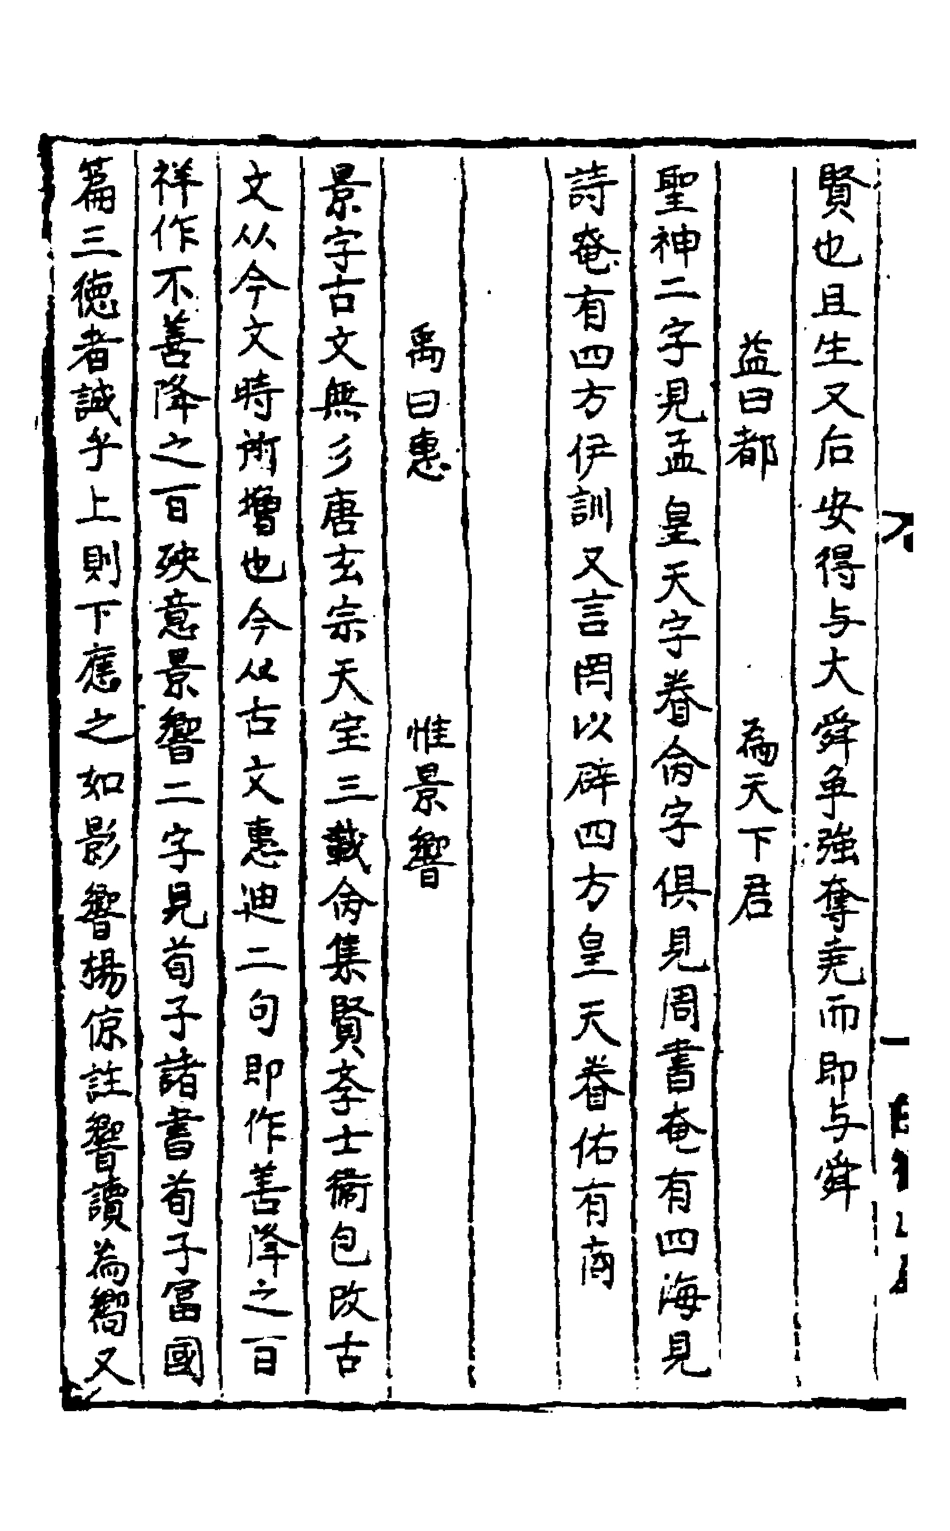 賢也且生又后安得与大舜争強奪尭而即与舜
益曰都　為天下君
聖神二字見孟皇天字眷㑹字俱見周書奄有四海見
詩奄有四方伊訓又言罔以辟四方皇天眷佑有商
禹曰惠　惟景響
景字古文無彡唐玄宗天宝三載㑹集賢斈士衞包改古
文从今文時所増也今从古文惠迪二句即作善降之百
祥作不善降之百殃意景響二字見荀子諸書荀子冨國
篇三徳者誠乎上則下應之如影響楊倞註響讀為嚮又